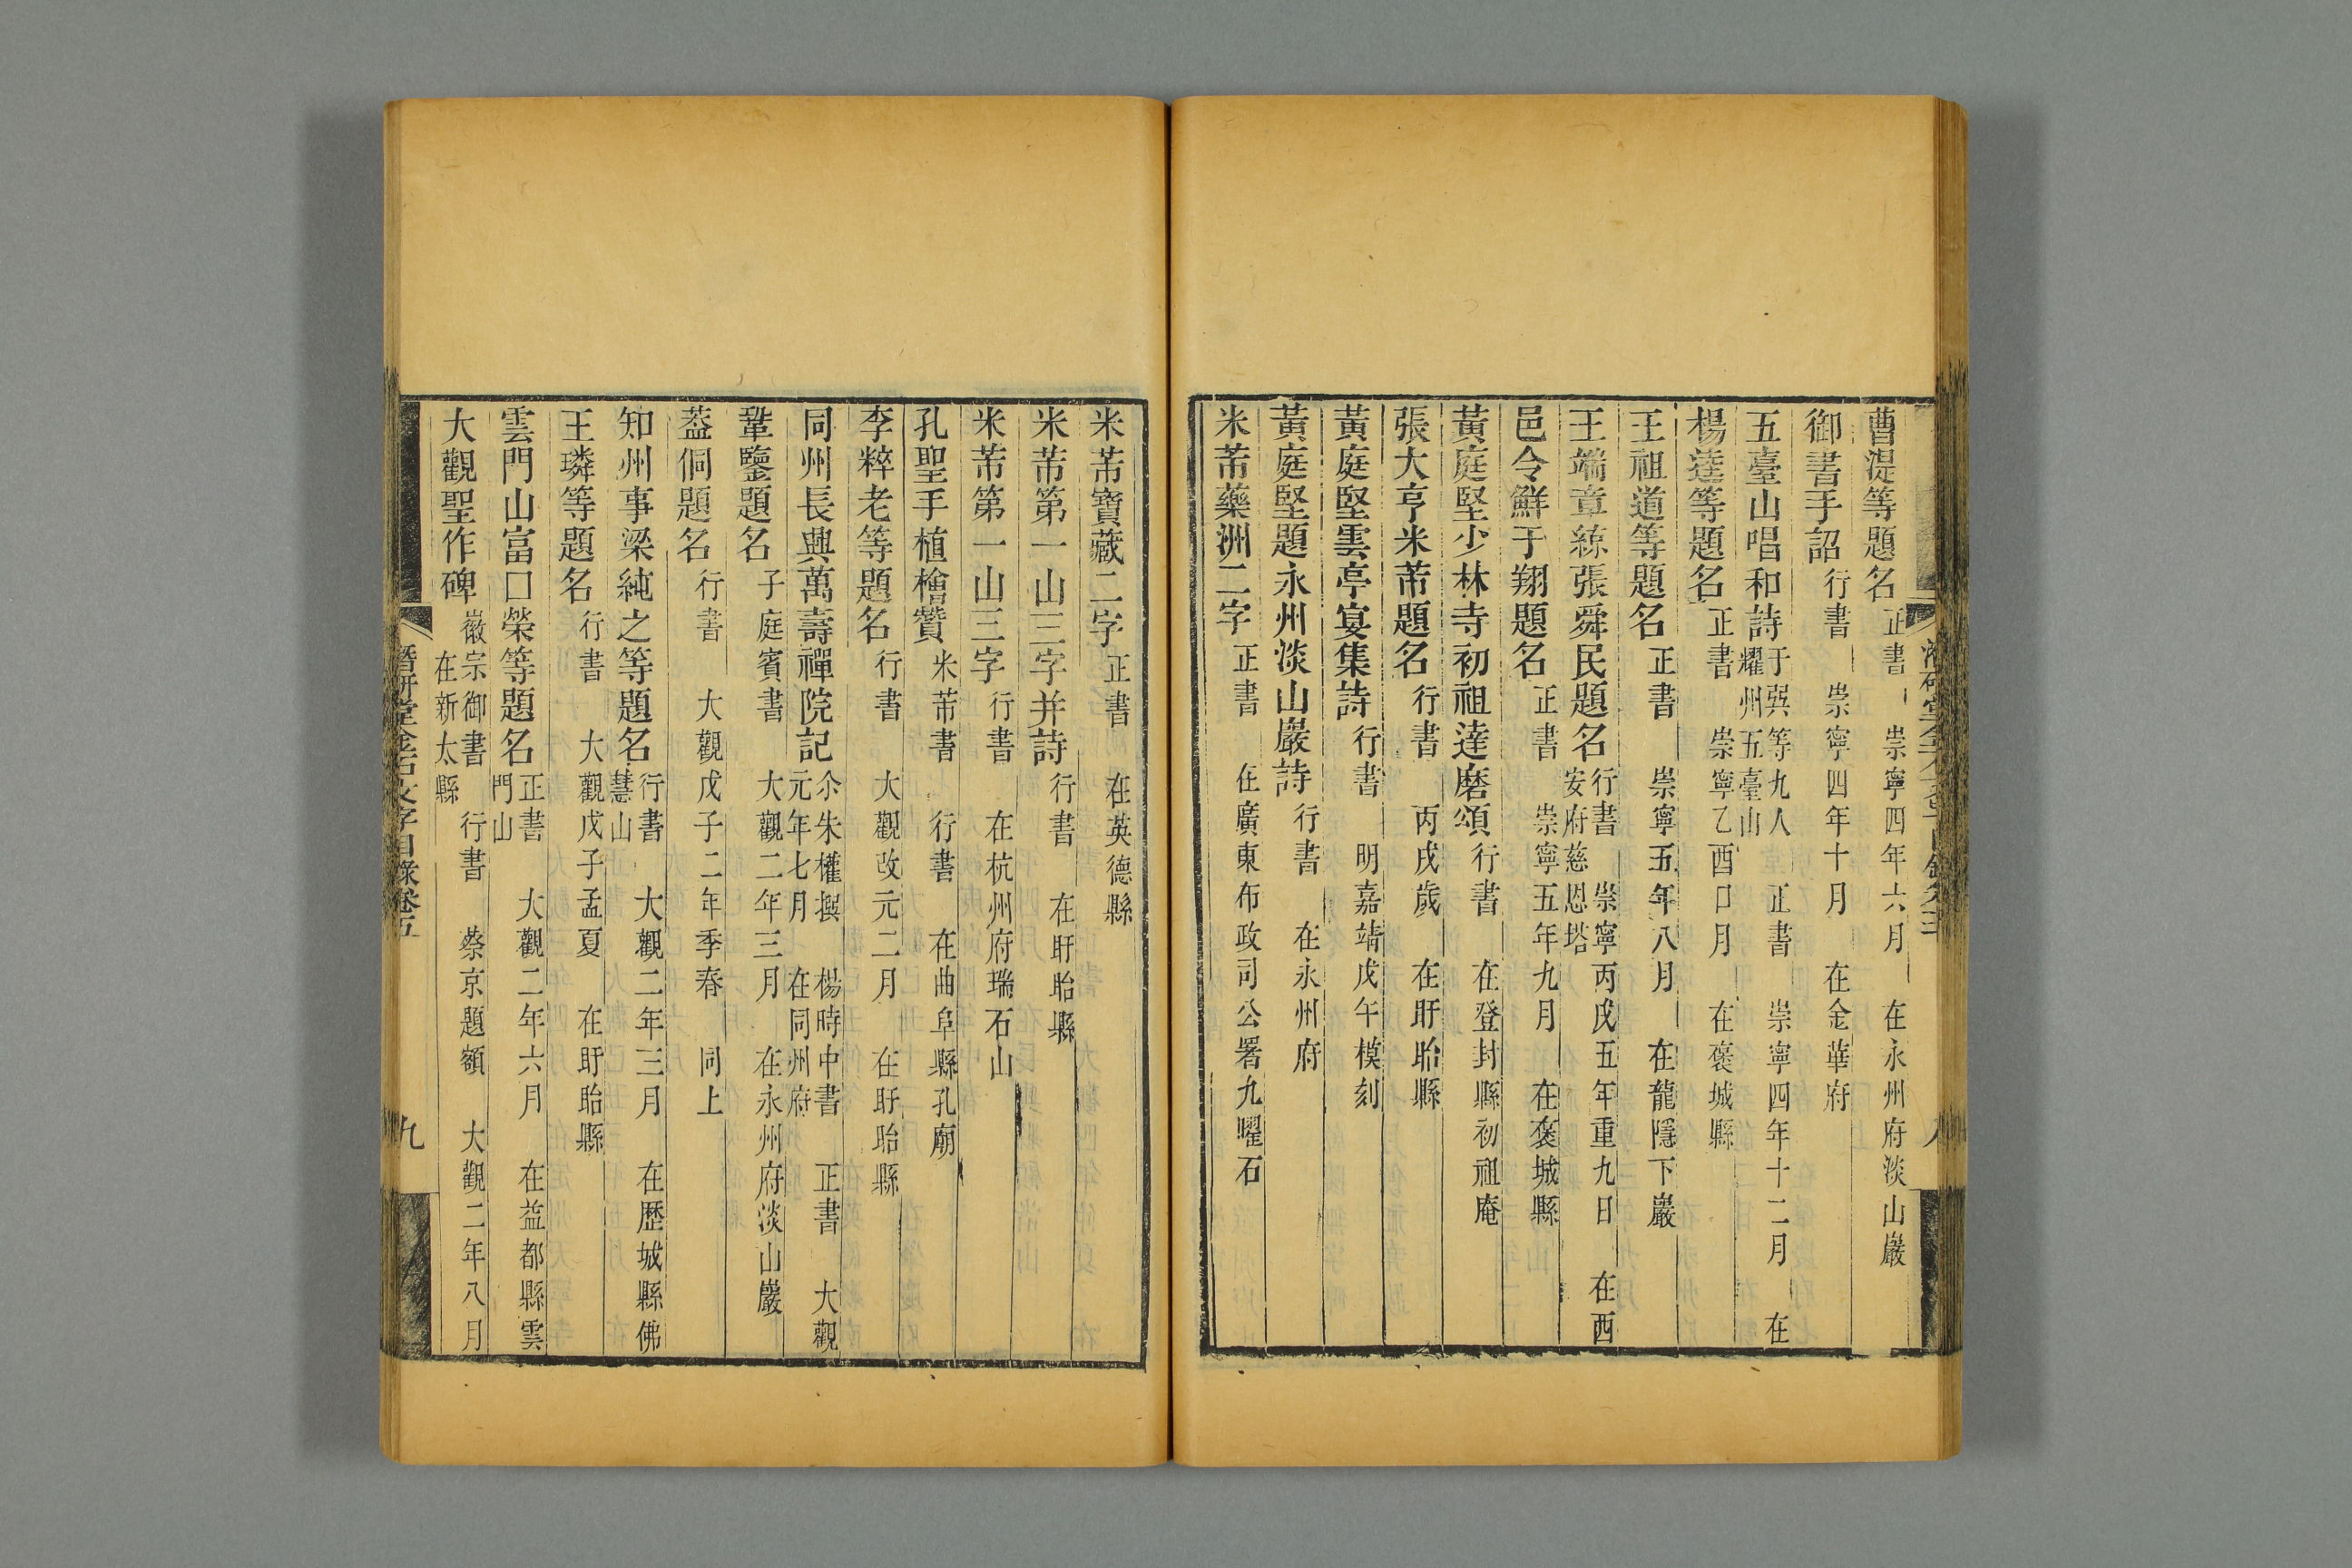 曹湜等題名 正書 崇寧四年六月 在永州府淡山巖
御書手詔 行書 崇寧四年十月 在金華府
五臺山唱和詩 于巽等九人 正書 崇寧四年十二月 在耀州五臺山
楊達等題名 正書 崇寧乙酉口月 在褒城縣
王祖道等題名 正書 崇寧五年八月 在龍隱下巖
王端章綡張舜民題名 行書 崇寧丙戌五年重九日 在西安府慈恩塔
邑令鮮于翔題名 正書 崇寧五年九月 在褒城縣
黃庭堅少林寺初祖達磨頌 行書 在登封縣初祖庵
張大亨米芾題名 行書 丙戌歲 在盱眙縣
黃庭堅雲亭宴集詩 行書 明嘉靖戊午模刻
黃庭堅題永州淡山巖詩 行書 在永州府
米芾藥洲二字 正書 在廣東布政司公署九曜石
米芾寶藏二字 正書 在英德縣
米芾第一山三字并詩 行書 在盱眙縣
米芾第一山三字 行書 在杭州府瑞石山
孔聖手植檜贊 米芾書 行書 在曲阜縣孔廟
李粹老等題名 行書 大觀改元二月 在盱眙縣
同州長興萬壽禪院記 尒朱權撰 楊時中書 正書 大觀元年七月 在同州府
鞏鑒題名 子庭賓書 大觀二年三月 在永州府淡山巖
葢侗題名 行書 大觀戊子二年季春 同上
知州事梁純之等題名 行書 大觀二年三月 在歷城縣佛慧山
王璘等題名 行書 大觀戊子孟夏 在盱眙縣
雲門山富口榮等題名 正書 大觀二年六月 在益都縣雲門山
大觀聖作碑 徽宗御書 行書 蔡京題額 大觀二年八月 在新太縣
潛研堂金石文字目錄卷五 九